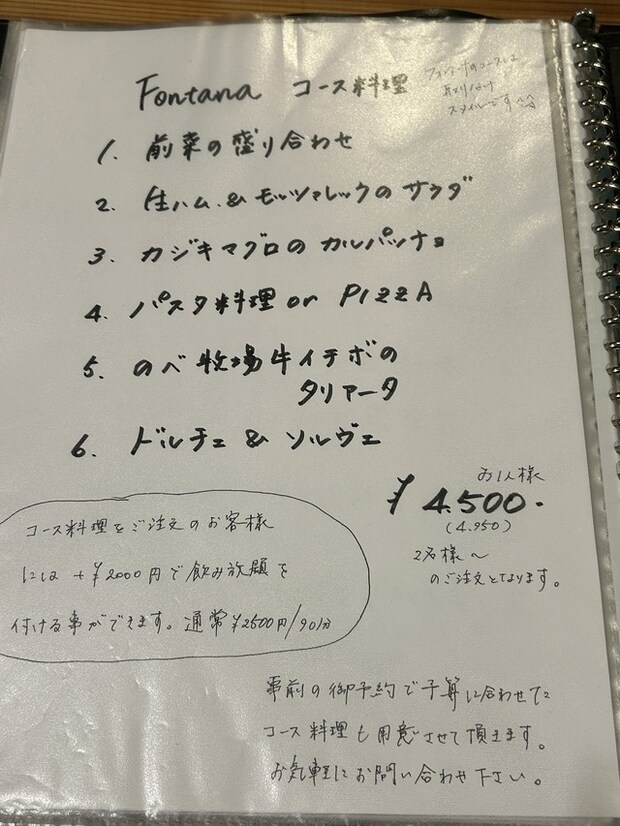 Fontana コース料理
フォンターナのコースは
取り分け
スタイルです^^
1. 前菜の盛り合わせ
2. 生ハム & モッツァレッラのサラダ
3. カジキマグロのカルパッチョ
4. パスタ料理 or PIZZA
5. のべ牧場牛イチボの
タリアータ
6. ドルチェ & ソルヴェ
お1人様
¥4.500.
(4.950)
2名様〜
のご注文となります。
コース料理をご注文のお客様
には +¥2000円で飲み放題を
付ける事ができます。通常¥2500円/90分
事前の御予約で予算に合わせた
コース料理も用意させて頂きます。
お気軽にお問い合わせ下さい。